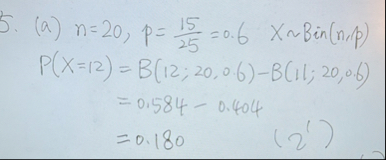 5. (a) n=20, p=15/25=0.6 X~Bin(n,p)
P(X=12)=B(12;20,0.6)-B(11;20,0.6)
=0.584-0.404
=0.180 (2')